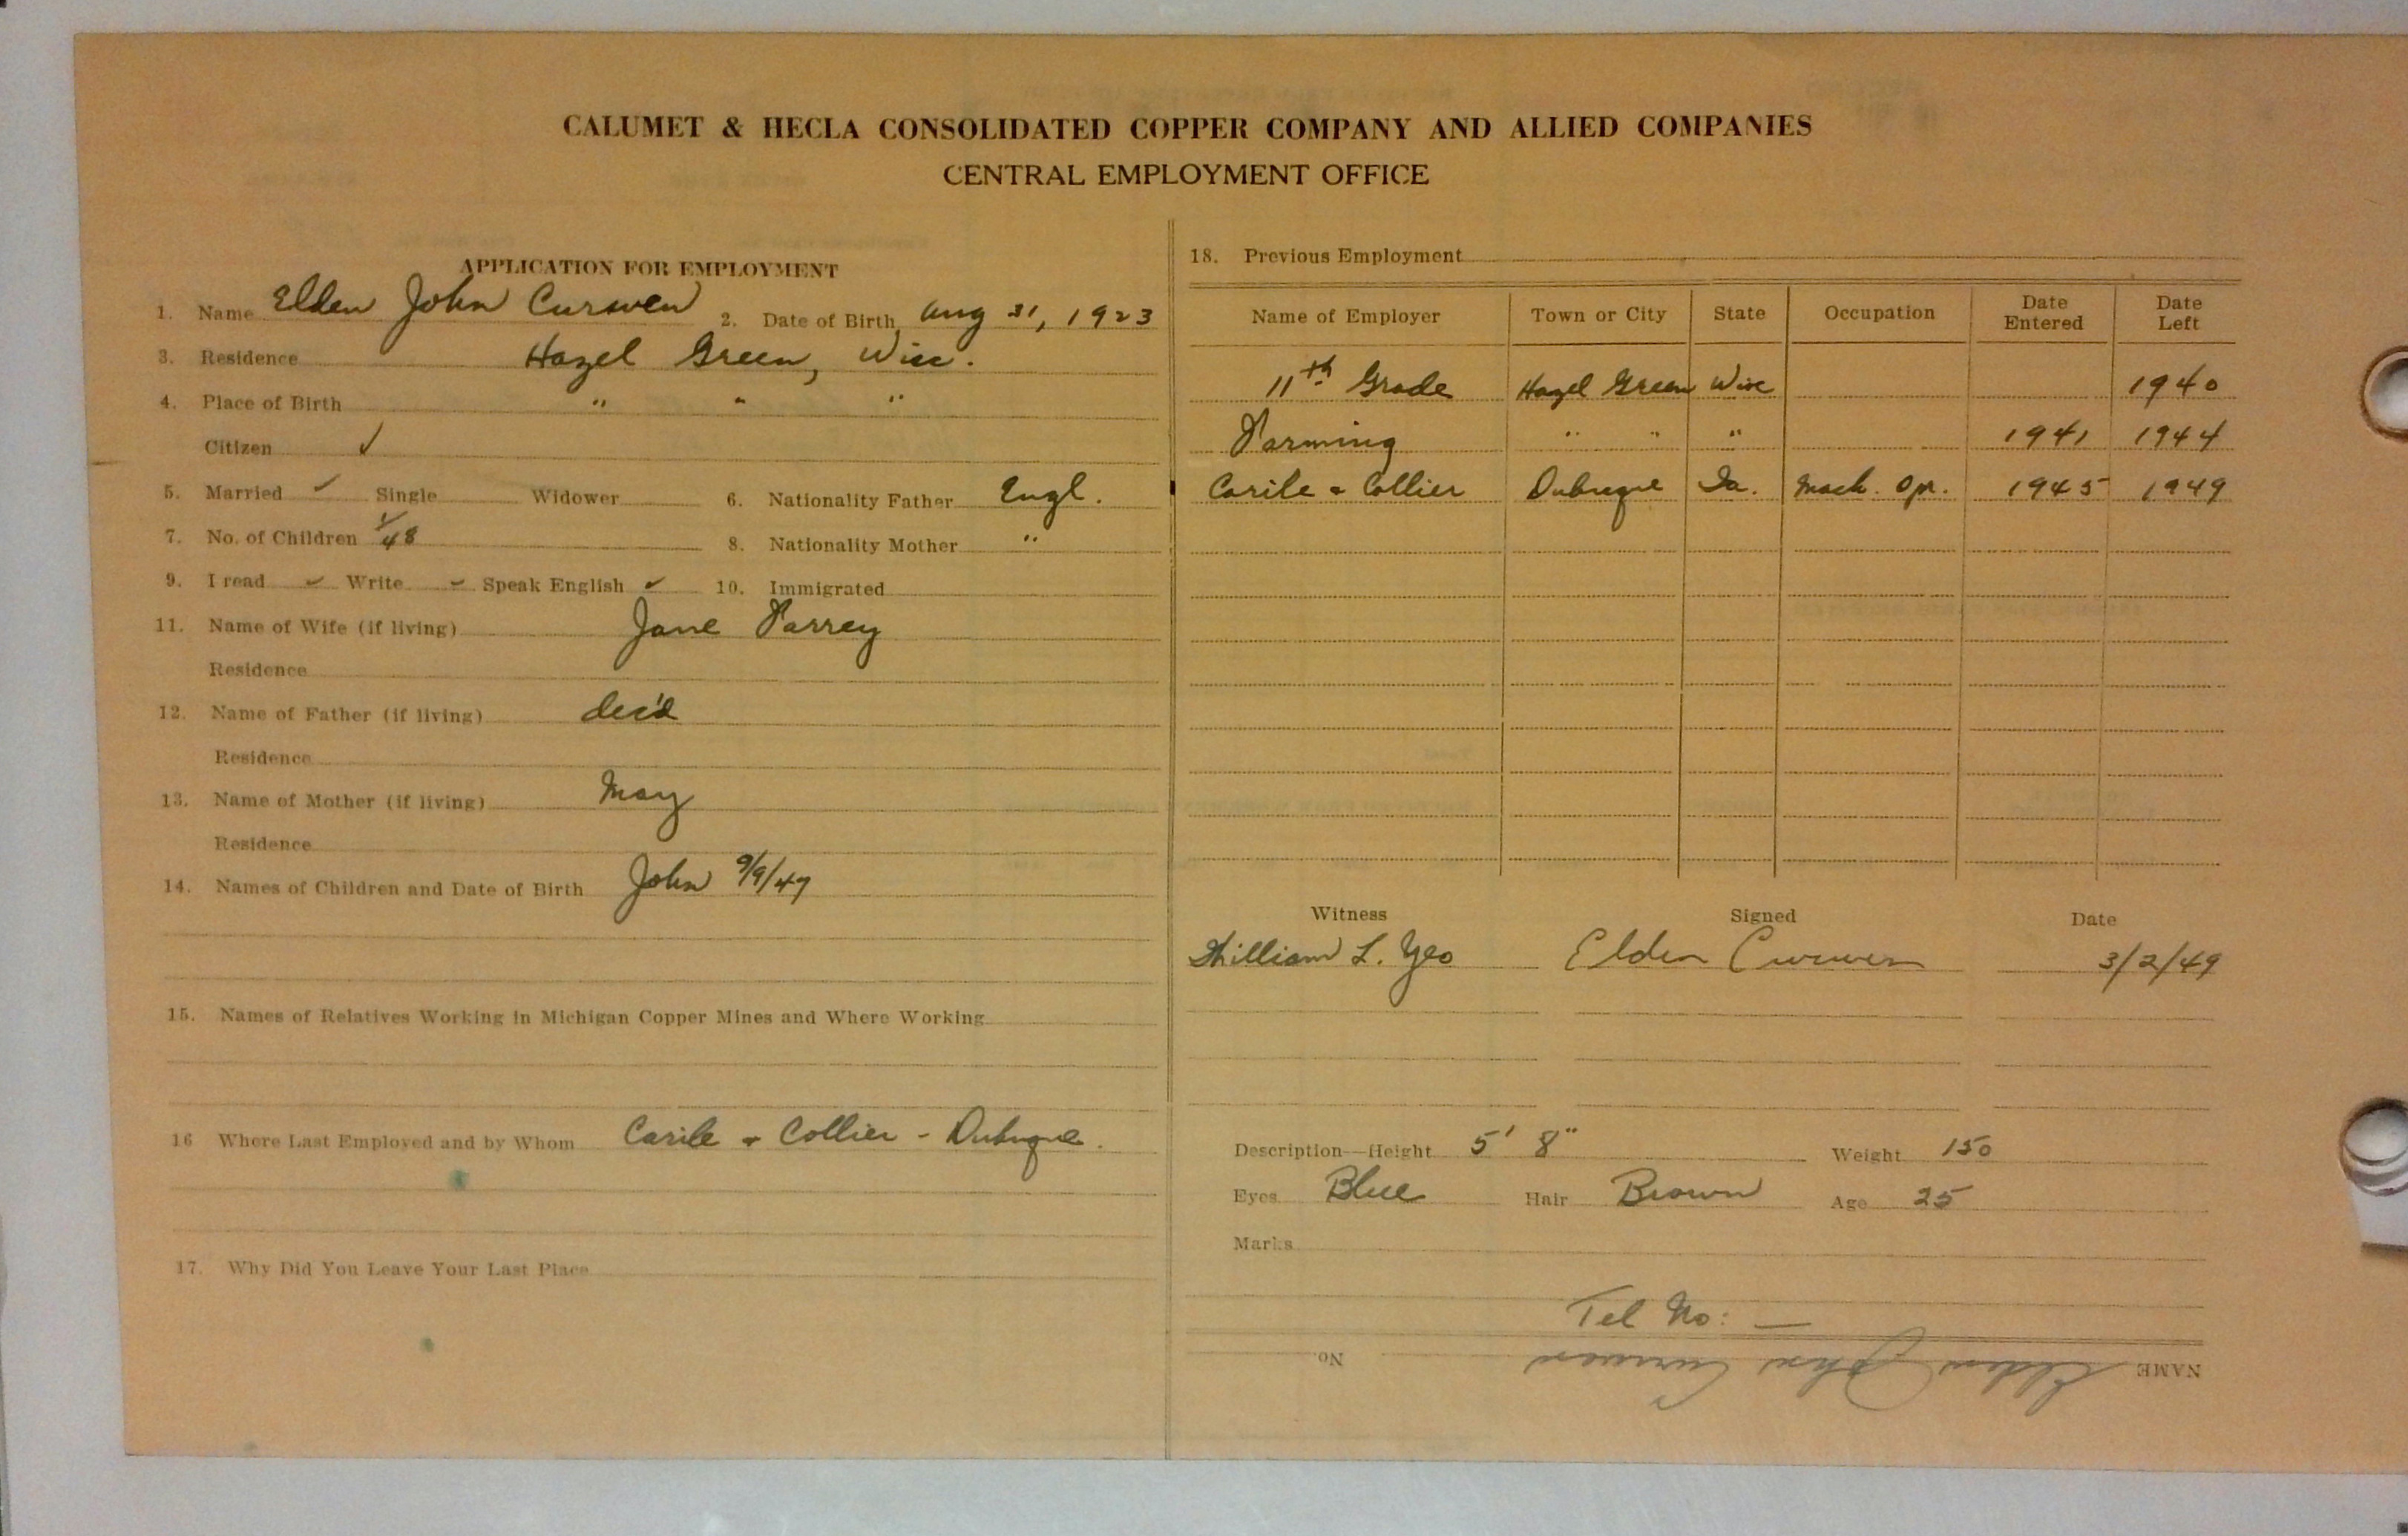 CALUMET & HECLA CONSOLIDATED COPPER COMPANY AND ALLIED COMPANIES
CENTRAL EMPLOYMENT OFFICE
APPLICATION FOR EMPLOYMENT
1. Name Elden John Curwen 2. Date of Birth Aug 31, 1923
3. Residence Hazel Green, Wisc.
4. Place of Birth " " "
Citizen ✓
5. Married ✓ Single Widower 6. Nationality Father Engl.
7. No. of Children 1/48 8. Nationality Mother "
9. I read ✓ Write ✓ Speak English ✓ 10. Immigrated
11. Name of Wife (if living) Jane Farrey
Residence
12. Name of Father (if living) dec'd
Residence
13. Name of Mother (if living) May
Residence
14. Names of Children and Date of Birth John 9/9/47
15. Names of Relatives Working in Michigan Copper Mines and Where Working
16 Where Last Employed and by Whom Carile & Collier - Dubuque.
17. Why Did You Leave Your Last Place
18. Previous Employment
Name of Employer Town or City State Occupation Date Entered Date Left
11th Grade Hazel Green Wisc 1940
Farming " " " 1941 1944
Carile & Collier Dubuque Ia. Mach. Opr. 1945 1949
Witness Signed Date
William L. Yeo Elden Curwen 3/2/49
Description—Height 5' 8" Weight 150
Eyes Blue Hair Brown Age 25
Marks
Tel No: —
NAME Elden John Curwen No.